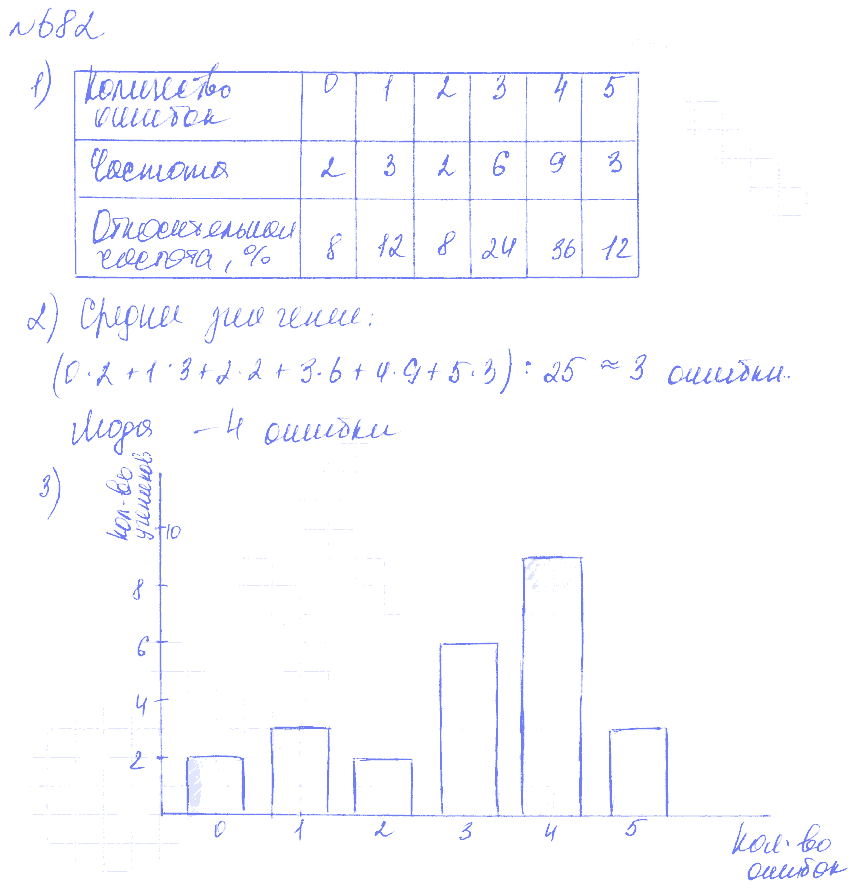 №682
1)
Количество ошибок 0 1 2 3 4 5
Частота 2 3 2 6 9 3
Относительная частота, % 8 12 8 24 36 12
2) Среднее значение:
(0·2+1·3+2·2+3·6+4·9+5·3) : 25 ≈ 3 ошибки.
Мода – 4 ошибки
3)
кол-во
учеников
10
8
6
4
2
0 1 2 3 4 5
кол-во
ошибок